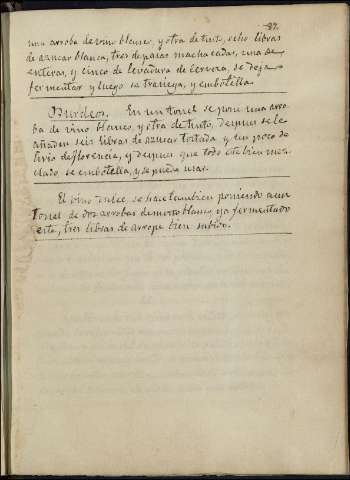 87.
una arroba de vino blanco, y otra de tinto, ocho libras
de azucar blanca, tres de pasas machacadas, una de
enteras, y cinco de levadura de cerveza, se deja
fermentar y luego se trasiega, y embotella.
Burdeos. En un tonel se pone una arro-
ba de vino blanco, y otra de tinto, despues se le
añaden seis libras de azucar tostada y un poco de
lirio de florencia, y despues que todo este bien mez-
clado se embotella, y se puede usar.
El vino dulce, se hace tambien poniendo a un
tonel de dos arrobas de mosto blanco, ya fermentado
este, tres libras de arrope bien subido.